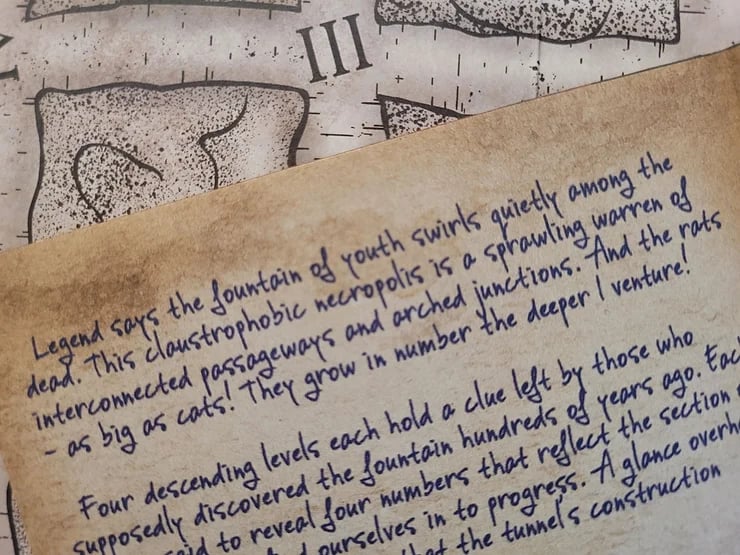 III
Legend says the fountain of youth swirls quietly among the
dead. This claustrophobic necropolis is a sprawling warren of
interconnected passageways and arched junctions. And the rats
- as big as cats! They grow in number the deeper I venture!
Four descending levels each hold a clue left by those who
supposedly discovered the fountain hundreds of years ago.
to reveal four numbers that reflect the section
ourselves in to progress. A glance
the tunnel's construction